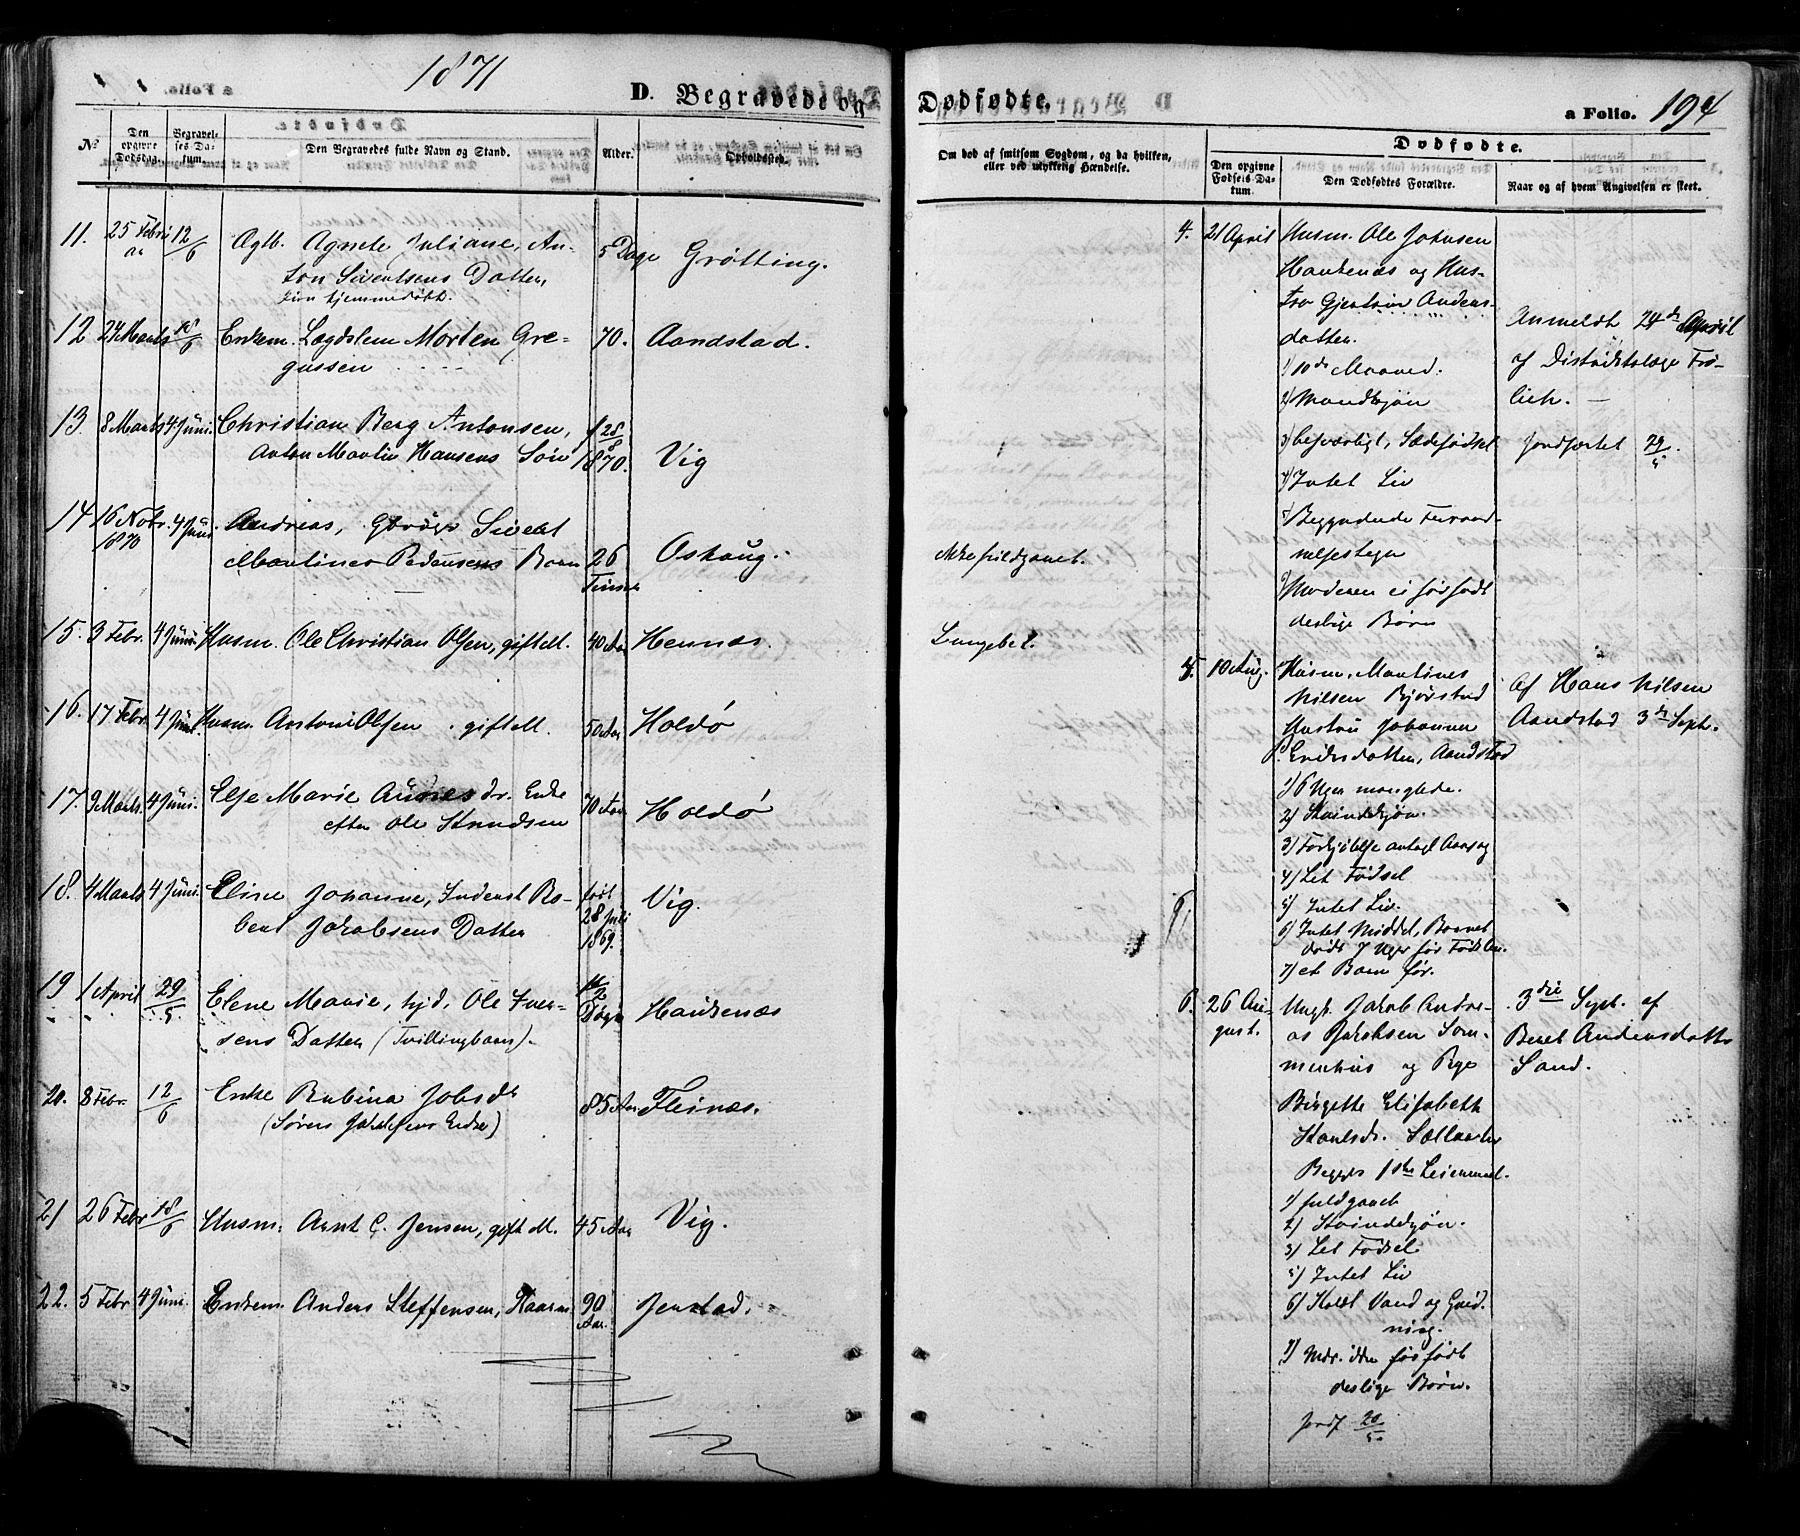 1871
D. Begravede og
Dødfødte.
a Folio. 194
No
Den opgivne Dødsdag.
Begravelses-Datum.
Den Begravedes fulde Navn og Stand.
Alder.
Opholdssted.
Om død af smitsom Sygdom, og da hvilken, eller ved ulykkelig Hændelse.
Dødfødte.
Den opgivne Fødsels-Datum.
Den Dødfødtes Forældre.
Naar og af hvem Angivelsen er skeet.
11. 25 Febru 12/6 Ogtb. Agnete Juliane, An- 5 Dage Grøtting.
ar ton Sivertsens Datter
hjemmedøbt.
12 27 Marts 18/6 Enkem. Lægdslem Morten Gre- 70. Aandstad.
gussen
13. 8 Marts 4 Juni. Christian Berg Antonsen, f 28/8 1870. Vig
Anton Martin Hansens Søn
14 16 Novbr. 1870 4 Juni Andreas, Sivert
Martines Pedersens Barn 26 Timer Oshaug.
15. 3 Febr. 4 Juni. Husm. Ole Christian Olsen, gift M. 40 Aar Hennæs.
16. 17 Febr. 4 Juni. Husm. Antoni Olsen gift M. 50 Aar Holdø
17. 9 Marts. 4 Juni. Else Marie dr. Enke 70 Aar Holdø
efter Ole Knudsen
18. 4 Marts 4 Juni. Eline Johanne, Inderst Ro- født 28 Juli 1869. Vig.
bert Jakobsens Datter
19 1 April 29/5 Elene Marie, Ole Iver- 1/2 Døgn Haukenæs
sens Datter (Tvillingbarn).
20. 8 Febr. 12/6 Enke Rubina Jobsdr 85 Aar Fleinæs.
(Sørens Enke)
21 26 Febr 18/6 Husm. Arnt C. Jensen, gift M. 45 Aar Vig.
22. 5 Febr 4 Juni. Enkem. Anders Steffensen, 90 Aar. Jenstad.
Ikke fuldgaaet.
Lungebet.
4. 21 April Husm. Ole Johnsen
Haukenæs og Hus-
tro Anders-
datter.
1) 10de Maaned.
2) Mandkjøn
3) besværligt, Sædefødsel
4) Intet Liv
5) Begyndende Forraad-
nelsestegn
Moderen ei før født
deslige Børn
Anmeldt 24de April
af Distriktslæge Frø-
lich. —
Jordfæstet 29/5.
5. 10 Aug. Husm. Martines
Nilsen Bjørstad
Hustru Johanna
Eriksdatter, Aandstad
1) 6 Uger manglede.
2) Kvindekjøn.
3) antagl. Aarsag
4) Let Fødsel
5) Intet Liv.
6) Intet Middel, Barnet
dødt 7 Uger før Fødslen.
7) et Barn før.
Af Hans Nilsen
Aandstad 3de Septr.
6. 26 Au-
gust. Ungk. Jakob Andre-
as Jakobsen Som-
merhus og Pige
Birgitte Elisabeth
Karlsdr.
Begges 1ste Leiermaal.
1) fuldgaaet
2) Kvindekjøn.
3) Let Fødsel
5) Intet Liv
6) Koldt Vand og Gnid-
ning.
7) Mdr. ikke før født
deslige Børn.
3die Sept. af
Beret Andersdatter
Sand.